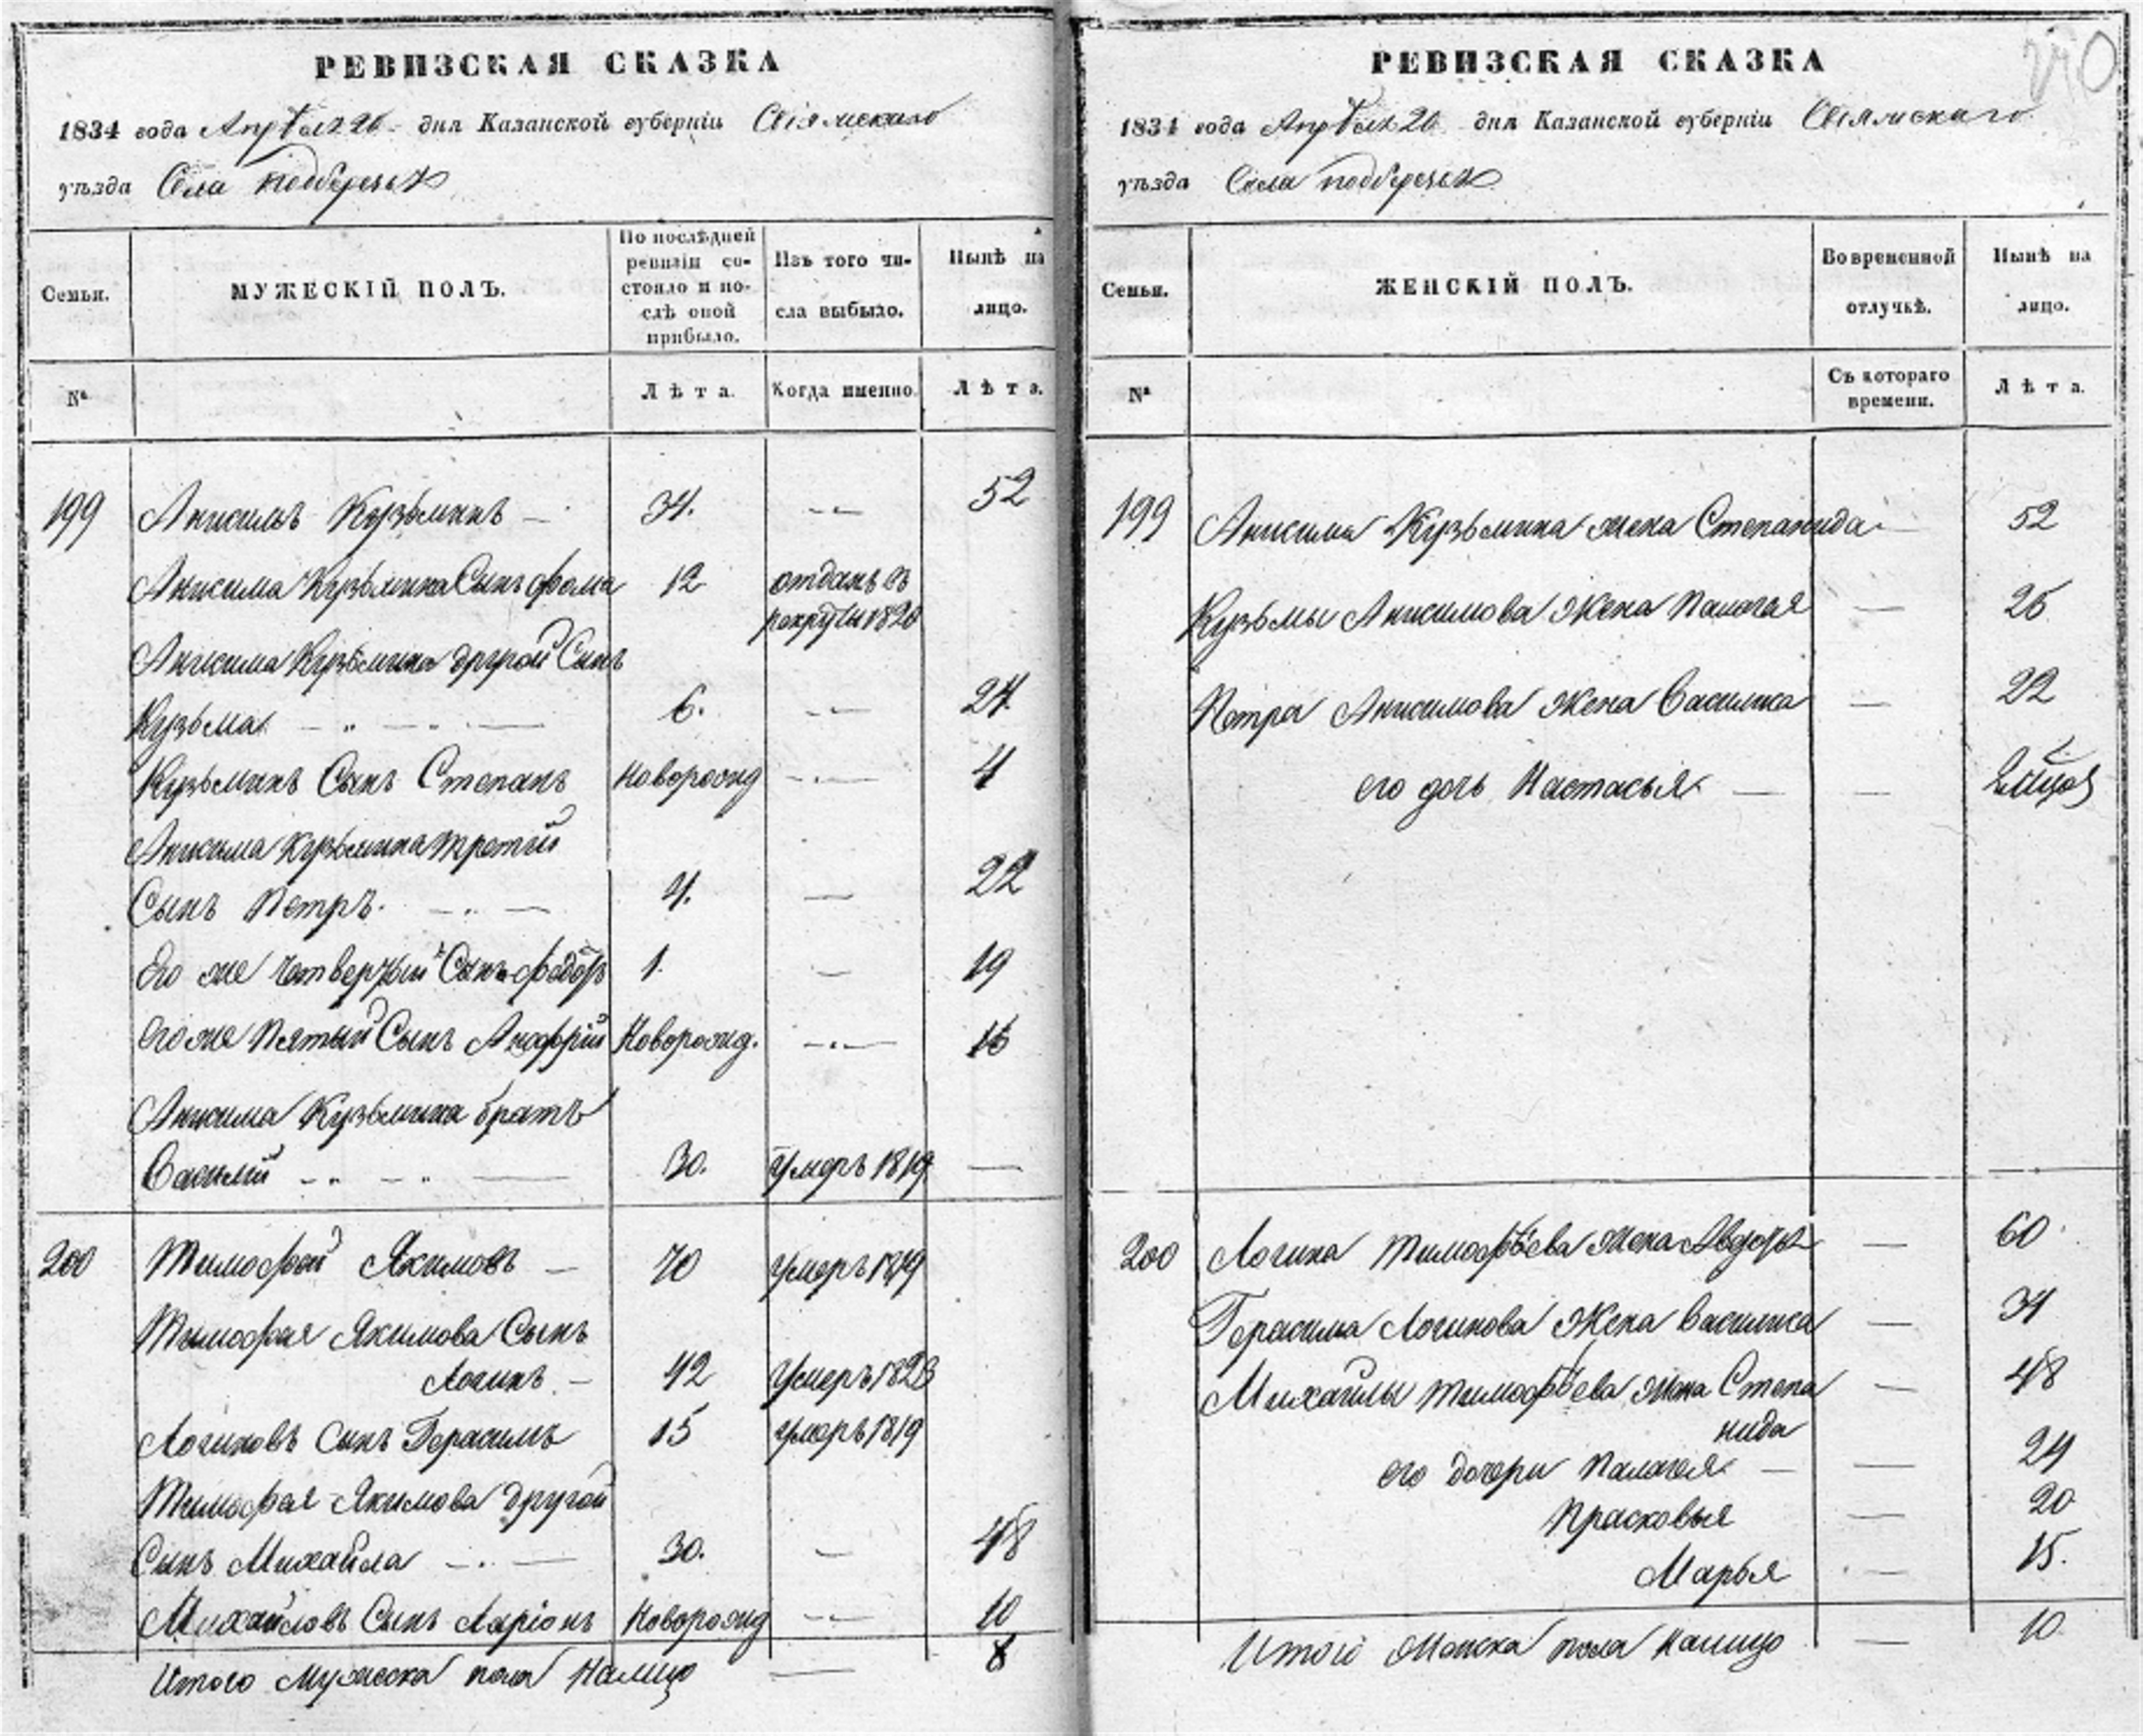 РЕВИЗСКАЯ СКАЗКА
1834 года Апрѣля 20 дня Казанской губерніи Свіяжскаго
уѣзда Села подберезья
Семьи.
МУЖЕСКІЙ ПОЛЪ.
По послѣдней ревизіи состояло и послѣ оной прибыло.
Изъ того числа выбыло.
Нынѣ на лицо.
№
Лѣта.
Когда именно.
Лѣта.
199 Анисимъ Кузьминъ 34. 52
Анисима Кузьмина Сынъ фома 12 отданъ въ
рекруты 1820
Анисима Кузьмина другой Сынъ
Кузьма 6. 24.
Кузьминъ Сынъ Степанъ Новорожд 4
Анисима Кузьмина третій
Сынъ Петръ. 4. 22
Его же четвертый Сынъ федоръ 1. 19
его же Пятый Сынъ Анофрій Новорожд. 16
Анисима Кузьмина братъ
Василій 30. Умеръ 1819
200 Тимофей Якимовъ 70 умеръ 1819
Тимофея Якимова Сынъ
Логинъ 42 Умеръ 1823
Логиновъ сынъ Герасимъ 15 умеръ 1819
Тимофея Якимова другой
Сынъ Михайла 30. 48
Михайловъ Сынъ Ларіонъ Новорожд 10
Итого Мужеска пола Налицо 8
240
РЕВИЗСКАЯ СКАЗКА
1834 года Апрѣля 20 дня Казанской губерніи Свіяжскаго
уѣзда Села подберезья
Семьи.
ЖЕНСКІЙ ПОЛЪ.
Во временной отлучкѣ.
Нынѣ на лицо.
№
Съ котораго времени.
Лѣта.
199 Анисима Кузьмина жена Степанида 52
Кузьмы Анисимова Жена Палагая 26
Петра Анисимова Жена Василиса 22
его дочь Настасья
200 Логина Тимофѣева Жена Авдотья 60
Герасима Логинова Жена Василиса 34
Михайлы Тимофѣева Жена Степа 48
нида
его дочери Палагея 24
Прасковья 20
Марья 15.
Итого Женска пола налицо 10